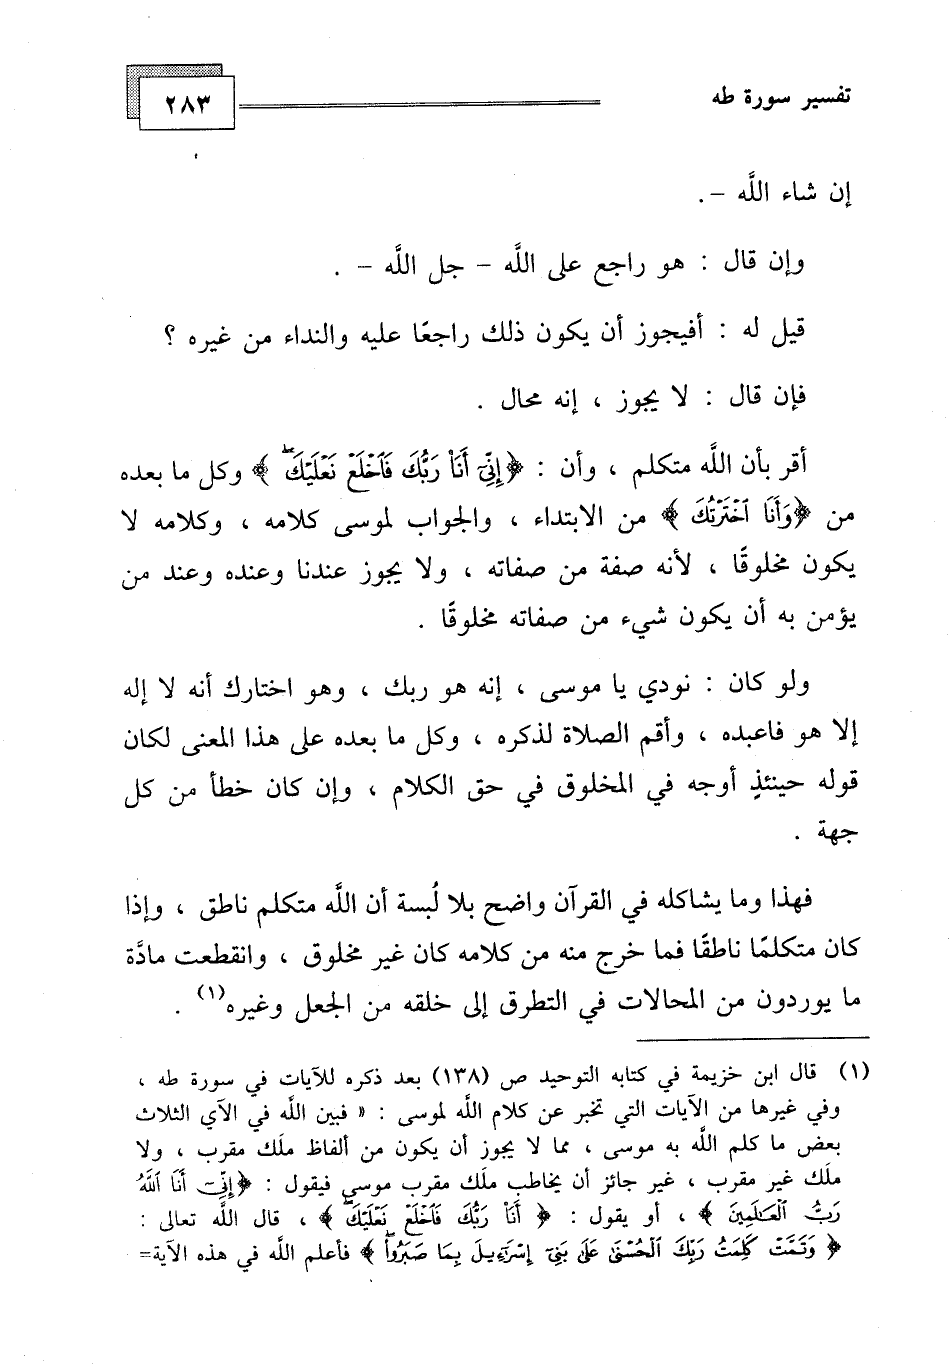 تفسير سورة طه
٢٨٣
إن شاء اللَّه – .
وإن قال : هو راجع على اللَّه – جل اللَّه – .
قيل له : أفيجوز أن يكون ذلك راجعًا عليه والنداء من غيره ؟
فإن قال : لا يجوز ، إنه محال .
أقر بأن اللَّه متكلم ، وأن : ﴿إِنِّيٓ أَنَا۠ رَبُّكَ فَٱخۡلَعۡ نَعۡلَيۡكَۖ ﴾ وكل ما بعده
من ﴿وَأَنَا ٱخۡتَرۡتُكَ ﴾ من الابتداء ، والجواب لموسى كلامه ، وكلامه لا
يكون مخلوقًا ، لأنه صفة من صفاته ، ولا يجوز عندنا وعنده وعند من
يؤمن به أن يكون شيء من صفاته مخلوقًا .
ولو كان : نودي يا موسى ، إنه هو ربك ، وهو اختارك أنه لا إله
إلا هو فاعبده ، وأقم الصلاة لذكره ، وكل ما بعده على هذا المعنى لكان
قوله حينئذٍ أوجه في المخلوق في حق الكلام ، وإن كان خطأ من كل
جهة .
فهذا وما يشاكله في القرآن واضح بلا لُبسة أن اللَّه متكلم ناطق ، وإذا
كان متكلمًا ناطقًا فما خرج منه من كلامه كان غير مخلوق ، وانقطعت مادَّة
ما يوردون من المحالات في التطرق إلى خلقه من الجعل وغيره(١) .
(١) قال ابن خزيمة في كتابه التوحيد ص (١٣٨) بعد ذكره للآيات في سورة طه ،
وفي غيرها من الآيات التي تخبر عن كلام اللَّه لموسى : « فبين اللَّه في الآي الثلاث
بعض ما كلم اللَّه به موسى ، مما لا يجوز أن يكون من ألفاظ ملَك مقرب ، ولا
ملَك غير مقرب ، غير جائز أن يخاطب ملَك مقرب موسى فيقول : ﴿إِنِّيٓ أَنَا ٱللَّهُ
رَبُّ ٱلۡعَٰلَمِينَ ﴾ ، أو يقول : ﴿ أَنَا۠ رَبُّكَ فَٱخۡلَعۡ نَعۡلَيۡكَۖ ﴾ ، قال اللَّه تعالى :
﴿ وَتَمَّتۡ كَلِمَتُ رَبِّكَ ٱلۡحُسۡنَىٰ عَلَىٰ بَنِيٓ إِسۡرَٰٓءِيلَ بِمَا صَبَرُواْۖ ﴾ فأعلم اللَّه في هذه الآية=